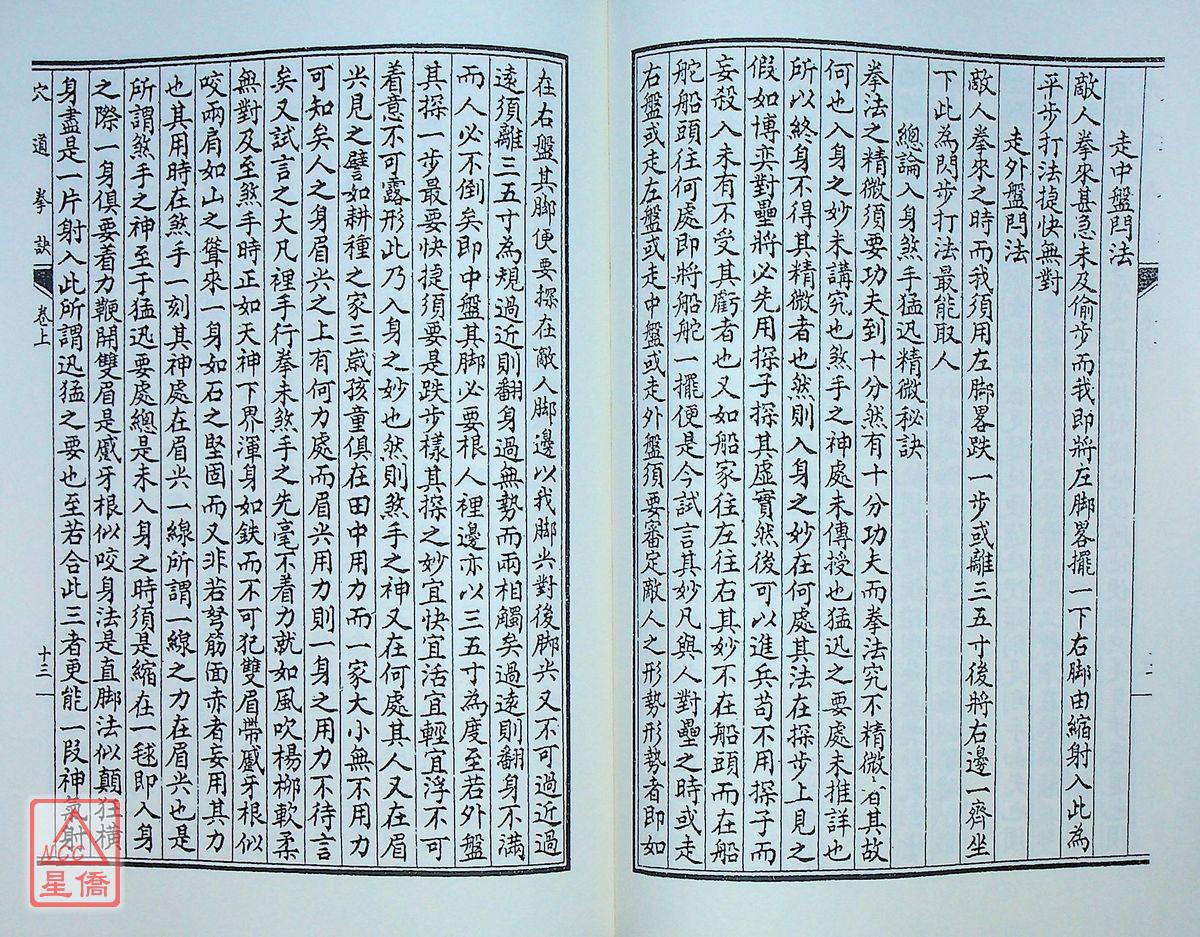 走中盤閃法
敵人拳來甚急未及偷步而我即將左脚畧擺一下右脚由縮射入此為
平步打法捷快無對
走外盤閃法
敵人拳來之時而我須用左脚畧跌一步或離三五寸後將右邊一齊坐
下此為閃步打法最能取人
總論入身煞手猛迅精微秘訣
拳法之精微須要功夫到十分然有十分功夫而拳法究不精微者其故
何也入身之妙未講究也煞手之神處未傳授也猛迅之要處未推詳也
所以終身不得其精微者也然則入身之妙在何處其法在探步上見之
假如博奕對壘將必先用探子探其虛實然後可以進兵苟不用探子而
妄殺入未有不受其虧者也又如船家往左往右其妙不在船頭而在船
舵船頭往何處即將船舵一擺便是今試言其妙凡與人對壘之時或走
右盤或走左盤或走中盤或走外盤須要審定敵人之形勢形勢者即如
在右盤其脚便要探在敵人脚邊以我脚尖對後脚尖又不可過近過
遠須離三五寸為規過近則翻身過無勢而兩相觸矣過遠則翻身不滿
而人必不倒矣即中盤其脚必要根人裡邊亦以三五寸為度至若外盤
其探一步最要快捷須要是跌步樣其探之妙宜快宜活宜輕宜浮不可
着意不可露形此乃入身之妙也然則煞手之神又在何處其人又在眉
尖見之譬如耕種之家三嵗孩童俱在田中用力而一家大小無不用力
可知矣人之身眉尖之上有何力處而眉尖用力則一身之用力不待言
矣又試言之大凡裡手行拳未煞手之先毫不着力就如風吹楊柳軟柔
無對及至煞手時正如天神下界渾身如鉄而不可犯雙眉帶蹙牙根似
咬兩肩如山之聳來一身如石之堅固而又非若努筋面赤者妄用其力
也其用時在煞手一刻其神處在眉尖一線所謂一線之力在眉尖也是
所謂煞手之神至于猛迅要處總是未入身之時須是縮在一毬即入身
之際一身俱要着力鞭開雙眉是蹙牙根似咬身法是直脚法似顛狂橫
身盡是一片射入此所謂迅猛之要也至若合此三者更能一叚神氣射
穴道拳訣 卷上 十三
NCC
星僑